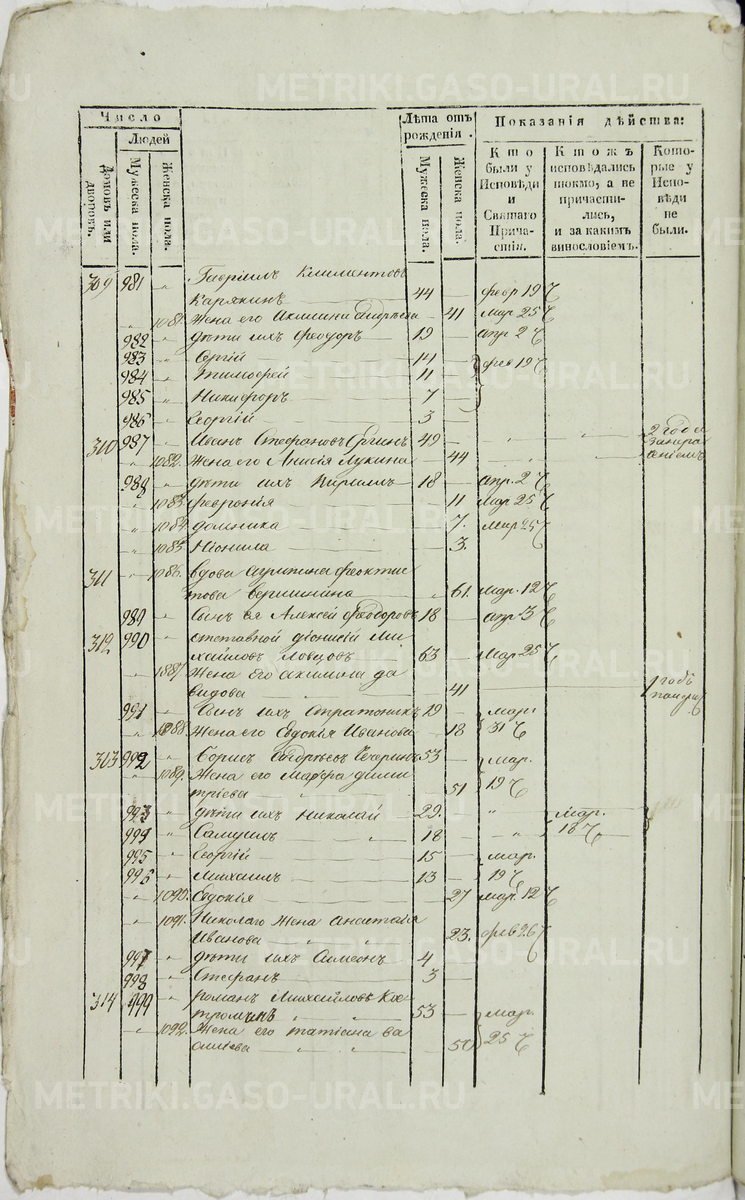 Число
Людей
Домовъ или дворовъ.
Мужеска пола.
Женска пола.
Лѣта отъ рожденія.
Мужеска пола.
Женска пола.
Показанія дѣйства:
Кто были у Исповѣди и Святаго Причастія.
Ктожъ исповѣдались токмо, а не причастились, и за какимъ винословіемъ.
Которые у Исповѣди не были.
309 981 " Гавріилъ Климентовъ
Карякинъ 44 — февр 19
" 1081. Жена его Акилина Андреева — 41 мар 25
982 " дѣти ихъ Феодоръ 19 — апр 2
983 " Сергій 14 — фев 19
984 " Тимофей 11 —
985 " Никифоръ 7 —
986 " Георгій 3 —
310 987 " Иванъ Стефановъ 49 — " " 2 года
" 1082. Жена его Анисія Лукина 44
988 " дѣти ихъ Кирилъ 18 — апр. 2
" 1083. Февронія — 11 мар 25
" 1084. Домника — 7. мар 25
" 1085 Нionила — 3.
311 " 1086. вдова Агрипина Феоктис
това Вершинина — 61. мар. 12
989 " Сынъ ея Алексей Феодоровъ 18 — апр. 3
312 990 " отставной Дионисій Ми
хайловъ Ловцовъ 63 — Мар 25
" 1087. Жена его Акилина Да
видова 41 1 годъ
991 " Сынъ ихъ Стратоникъ 19 — мар.
" 1088. Жена его Евдокія Иванова — 18 31
313 992 " Борисъ Андреевъ 53 — мар.
" 1089. Жена его Марѳа Дими
тріева " 51 19
993 " дѣти ихъ Николай 29. — " Мар.
994 " Самуилъ " 18 — " 18
995 " Георгій 15 — мар.
996 " Михаилъ 13 — 19
" 1090. Евдокія — 27 мар. 12
" 1091. Николаго жена Анастасія
Иванова " " 23. фев 26
997 " дѣти ихъ Симеонъ 4 —
998 " Стефанъ 3 —
314 999 " Романъ Михайловъ Кос
троминъ " " 53 — мар.
" 1092. Жена его Татиана Ва
силіева " " 50 25
METRIKI.GASO-URAL.RU